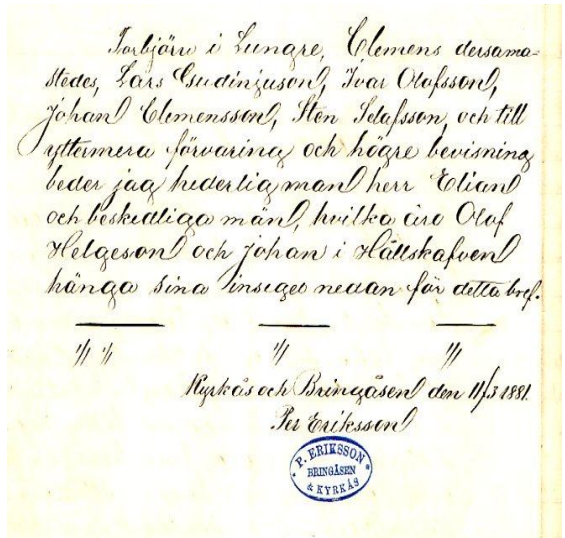 Torbjörn i Lungre, Clemens dersama-
stedes, Lars Gudinguson, Ivar Olofsson,
Johan Clemensson, Sten Selafsson, och till
yttermera förvaring och högre bevisning
beder jag hederlig man herr Elian
och beskedliga män, hvilka äro Olof
Helgeson och Johan i Hällskafven
hänga sina insigel nedan för detta bref.
Kyrkås och Bringåsen den 11/3 1881.
Per Eriksson
P. ERIKSSON
BRINGÅSEN
& KYRKÅS